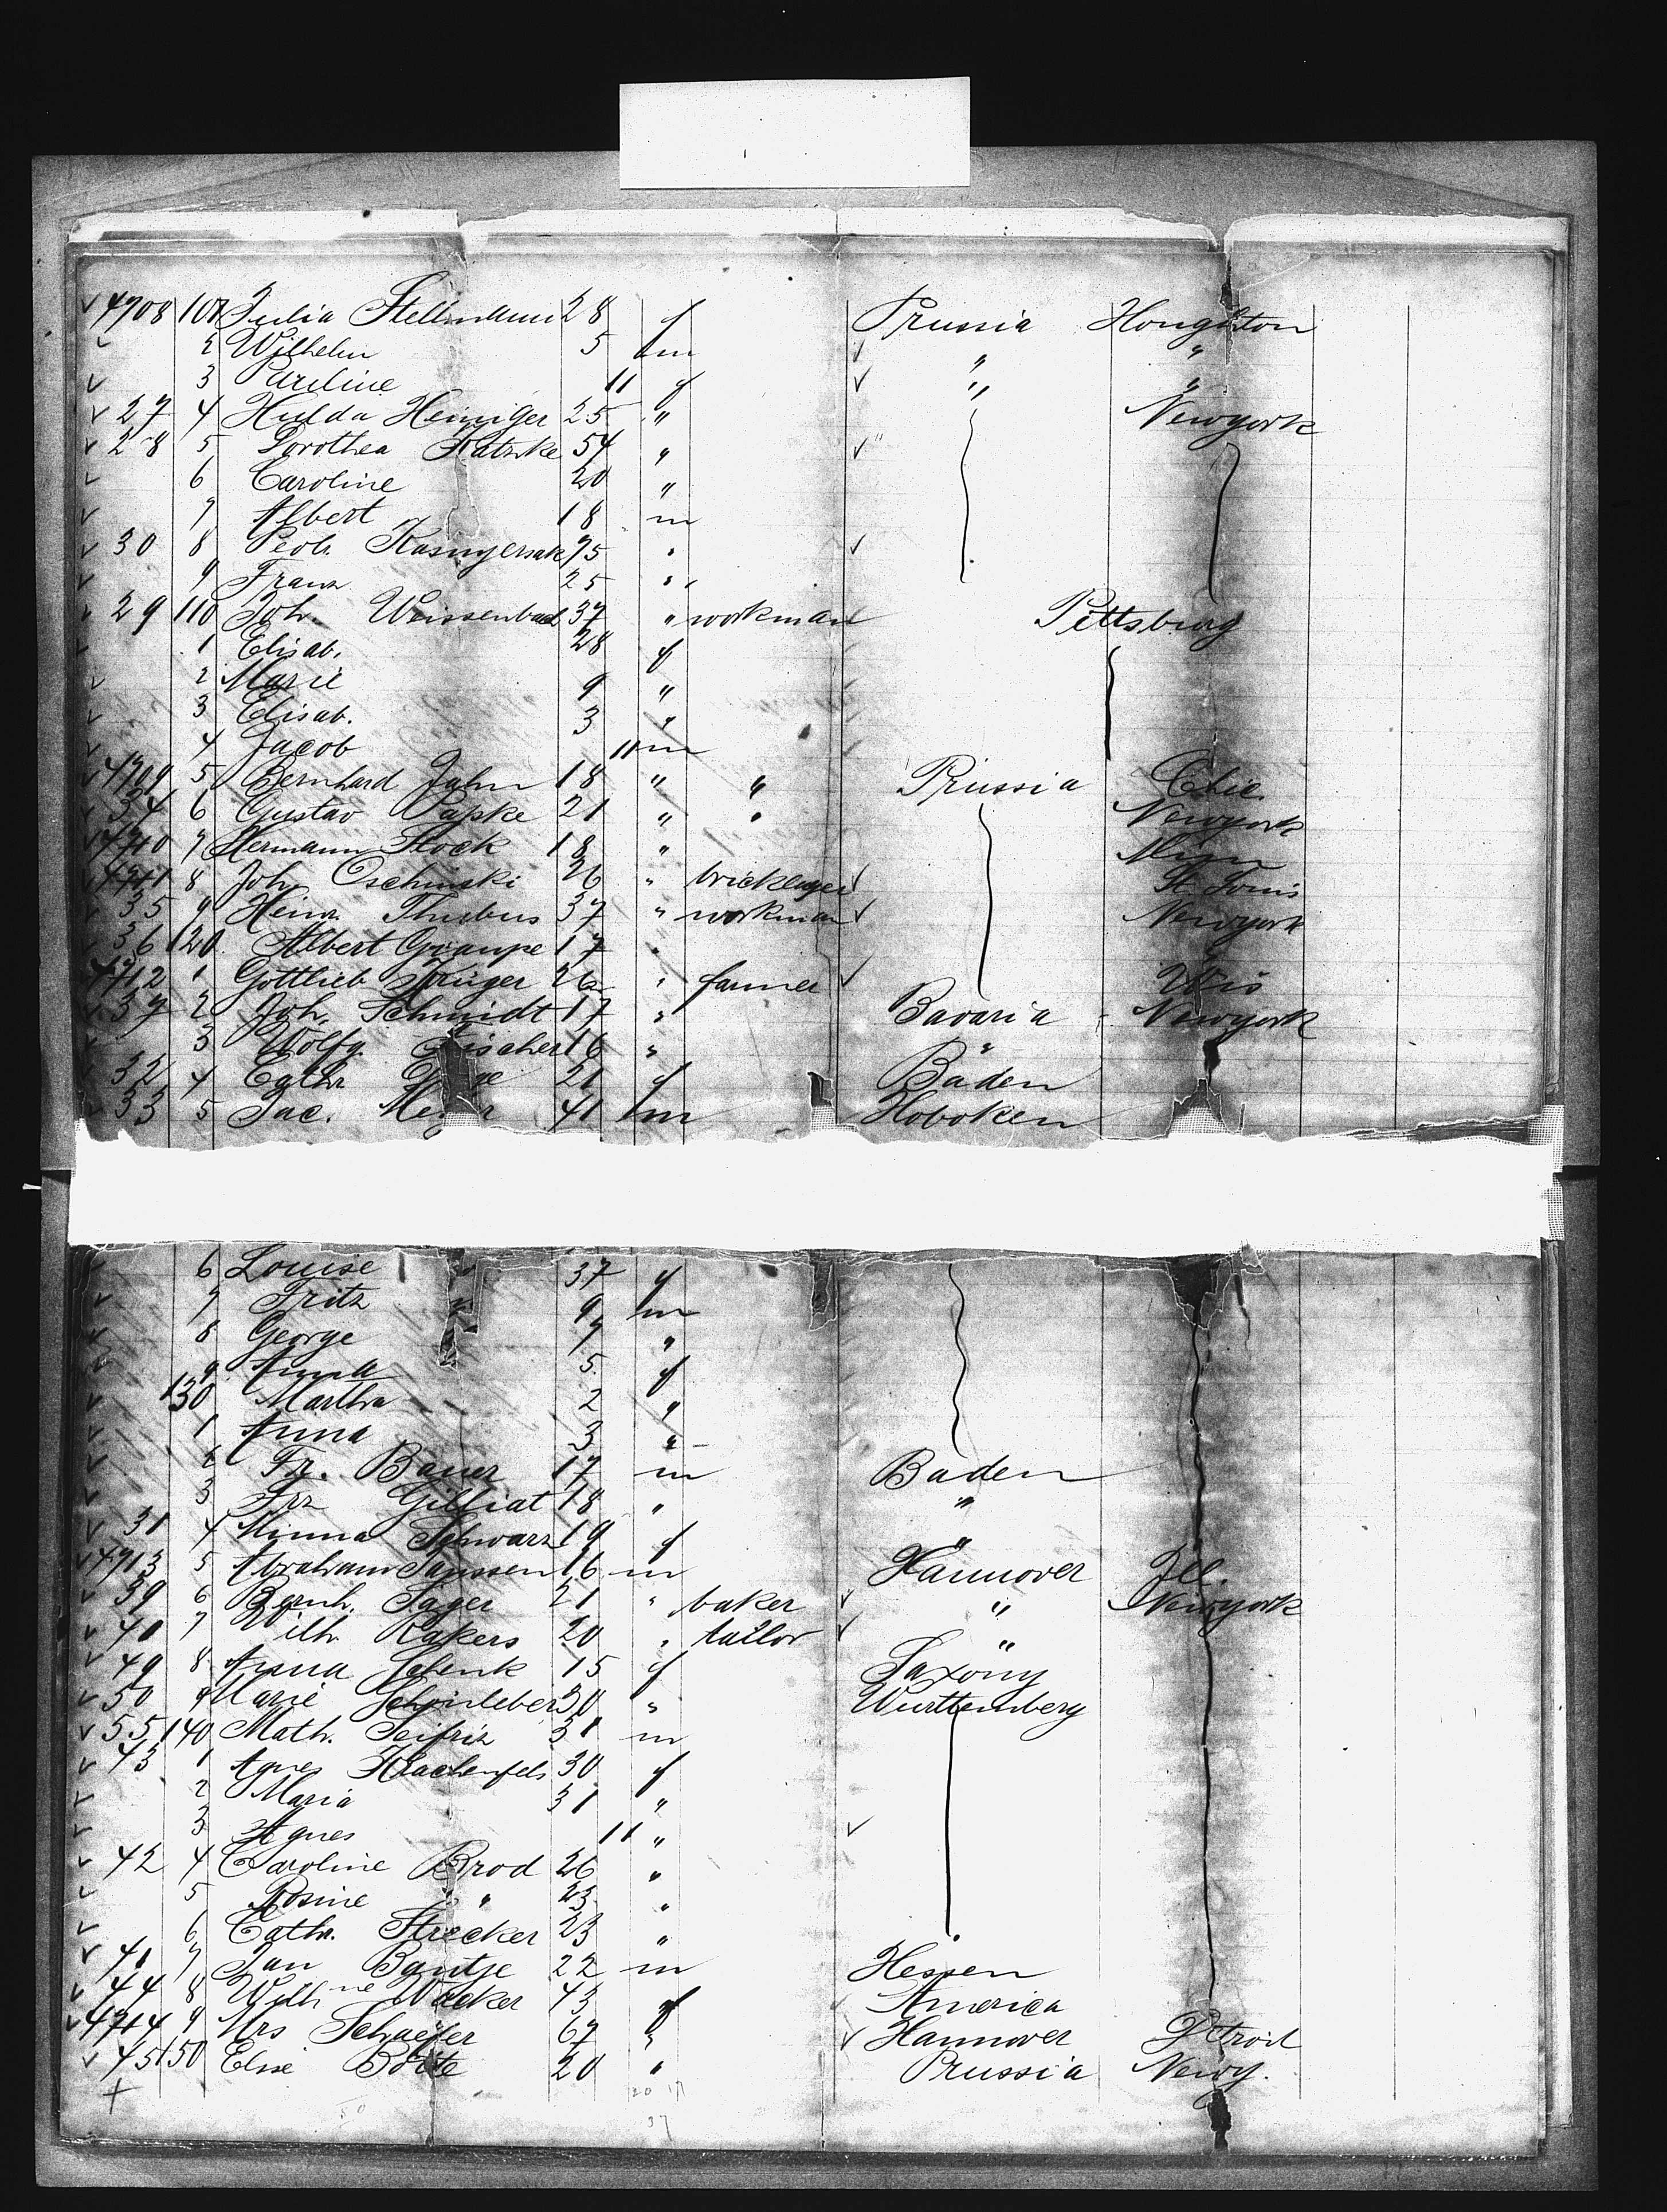 4708 101 Julia Stellmann 28 f Prussia Houghton
2 Wilhelm 5 m " "
3 Pauline 11 f " "
27 4 Hulda Heiniger 25 " Newyork
28 5 Dorothea Katzke 54 "
6 Caroline 20 "
7 Albert 18 m
30 8 75 "
9 Franz 25 "
29 110 Joh. Weissenbach 37 " workman Pittsburg
1 Elisab. 28 f
2 Marie 9 "
3 Elisab. 3 "
4 Jacob 11 m
4709 5 Bernhard Jahn 18 " " Prussia Chic.
34 6 Gustav Papke 21 " " Newyork
4710 7 Hermann Stock 18 "
4711 8 Joh. Oschinski 26 " bricklayer St. Louis
35 9 Heinr. Thubus 37 " workman Newyork
36 120 Albert Graupe 17 "
4712 1 Gottlieb Krüger 26 " farmer Wis
37 2 Joh. Schmidt 17 " Bavaria Newyork
3 Wolfg. Fischer 16 " "
32 4 Cathr 21 f Baden
33 5 Jac. Meyer 41 m Hoboken
6 Louise " 37 f
7 Fritz " 9 m
8 George 7 "
9 Anna 5 f
130 Martha 2 "
1 Anna 3 "
2 Fr. Bauer 17 m Baden
3 Frz Gilliat 18 " "
31 4 Minna Schwarz 19 f "
4713 5 Abraham Janssen 16 m Hannover Ill.
39 6 Bernh. Sager 21 " baker " Newyork
40 7 Wilh. Rakers 20 " tailor "
49 8 Anna Schenk 15 f Saxony
50 9 Marie 30 " Wurttemberg
55 140 Math. Seifriz 31 m
43 1 Agnes Hlachenfels 30 f
2 Maria 31 "
3 Agnes 11 "
42 4 Caroline Brod 26 "
5 Rosine " 23 "
6 Cathr. Strecker 23 "
41 7 Jan Bantje 22 m Hessen
44 8 Wilhne Wacker 43 f America
4714 9 Mrs Schaefer 67 " Hannover Detroit
45 150 Elise Bőtte 20 " Prussia Newy.
20 17
37